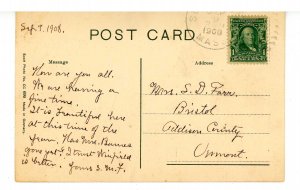 Sep. 7. 1908.
POST CARD
Message
Address
1908
MASS
How are you all.
We are having a
fine time.
It is beautiful here
at this time of the
year. Has Mrs. Barnes
gone yet? I trust Winfield
is better. Yours S. M. F.
Mrs. S. D. Farr.
Bristol
Addison County
Vermont.